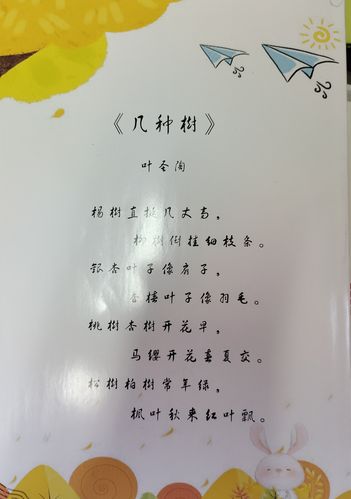 《几种樹》
叶圣陶
楊樹直挺几丈高，
柳樹倒挂细枝条。
银杏叶子像扇子，
杏椿叶子像羽毛。
桃樹杏樹开花早，
马缨开花春夏交。
松樹柏樹常年绿，
枫叶秋来红叶飘。